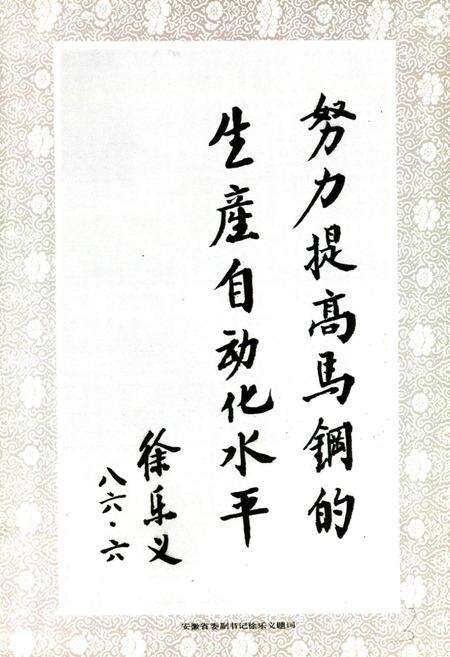 努力提高馬鋼的
生産自动化水平
徐乐义
八六·六
安徽省委副书记徐乐义题词